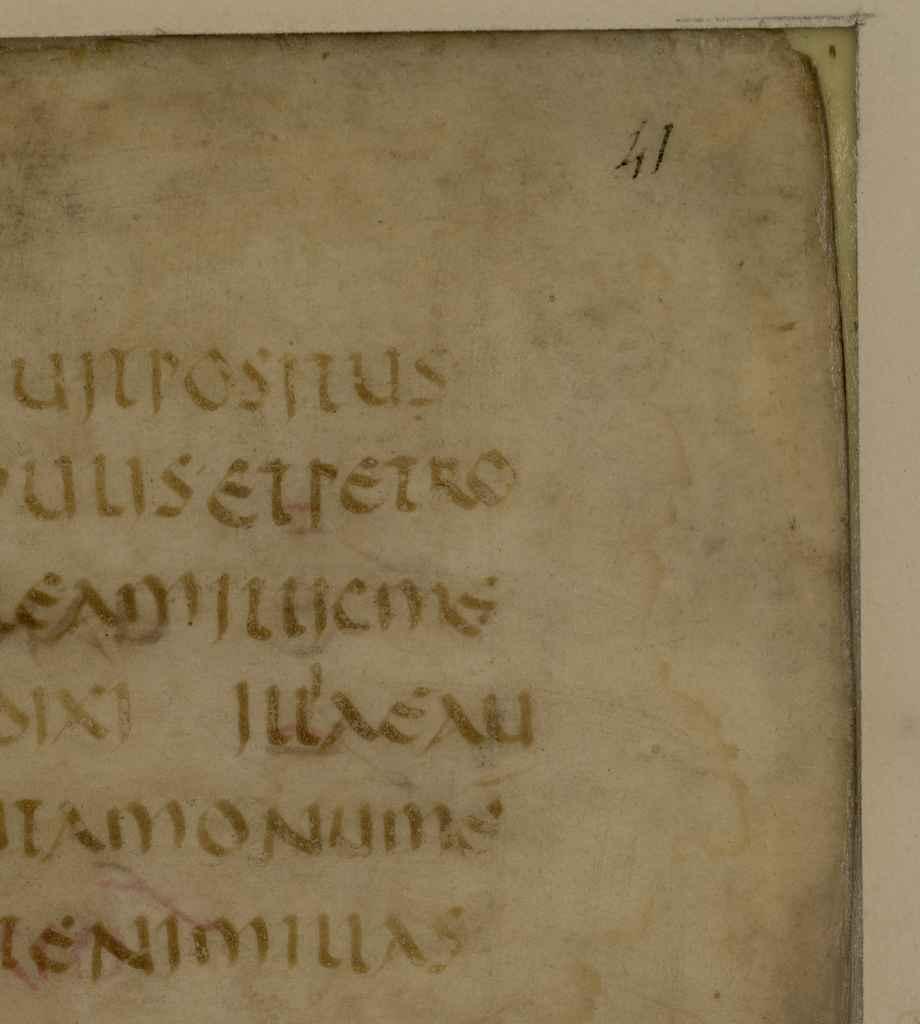 41
UITPOSITUS
PULISETPETRO
LEAMILLICME
DIXI ILLAEAU
NTAMONUME
TENIMILLAS